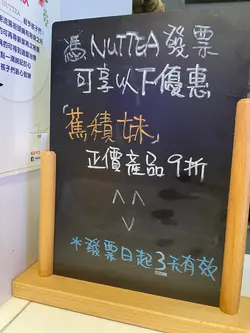 憑NUTTEA發票
可享以下優惠
「蕉積妹」
正價產品9折
*發票日起3天有效
NUTTEA